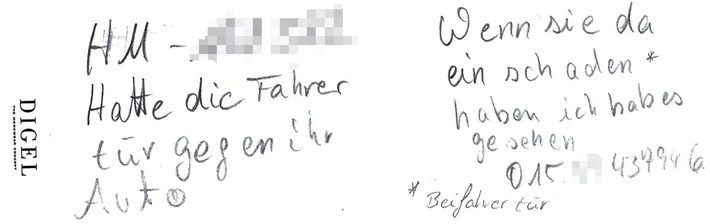 DIGEL
HM -
Hatte die Fahrer
tür gegen ihr
Auto
Wenn sie da
ein schaden *
haben ich habes
gesehen
015 437946
* Beifahrer tür